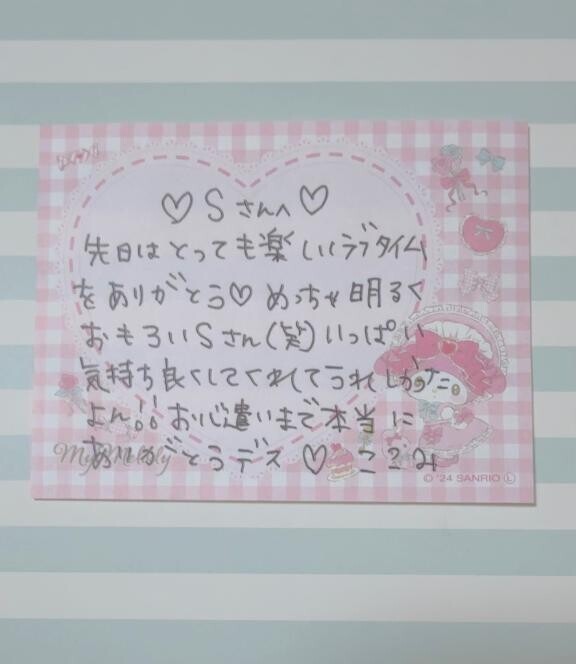 ♡Sさんへ♡
先日はとっても楽しいラブタイム
をありがとう♡めっちゃ明るく
おもろいSさん(笑)いっぱい
気持ち良くしてくれてうれしかった
よん!!お心遣いまで本当に
ありがとうデス♡ここみ
My Melody
© '24 SANRIO Ⓛ